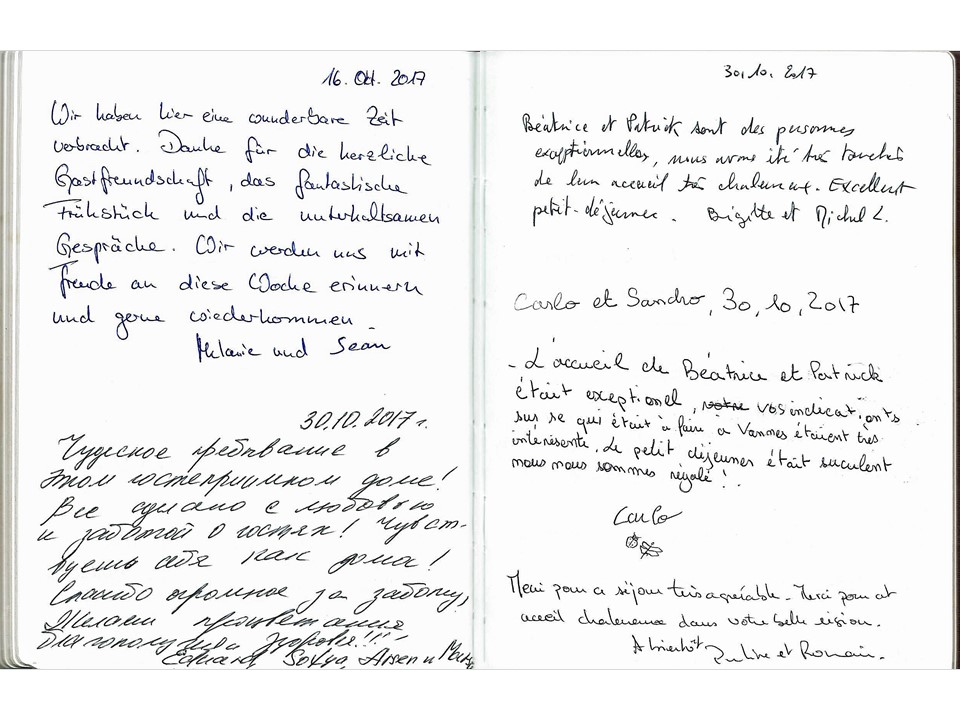 16. Okt. 2017
Wir haben hier eine wunderbare Zeit
verbracht. Danke für die herzliche
Gastfreundschaft, das fantastische
Frühstück und die unterhaltsamen
Gespräche. Wir werden uns mit
Freude an diese Woche erinnern
und gerne wiederkommen.
Melanie und Sean
30.10.2017 г.
Чудесное пребывание в
этом гостеприимном доме!
Все сделано с любовью
и заботой о гостях! Чувст-
вуешь себя как дома!
Спасибо огромное за заботу,
Желаем процветания
благополучия и здоровья!!!
Sofya, Arsen и
30.10.2017
Béatrice et Patrick sont des personnes
exceptionnelles, nous avons été très touchés
de leur accueil très chaleureux. Excellent
petit-déjeuner. Brigitte et Michel L.
Carlo et Sandro, 30,10,2017
- L'accueil de Béatrice et Patrick
était exceptionel, votre vos indications
sur se qui était à faire a Vannes étaient très
intérisente. Le petit déjeuner était suculent
nous nous sommes régalé!
Carlo
Merci pour ce séjour très agréable. Merci pour cet
accueil chaleureux dans votre belle région.
A bientôt Pauline et Romain.